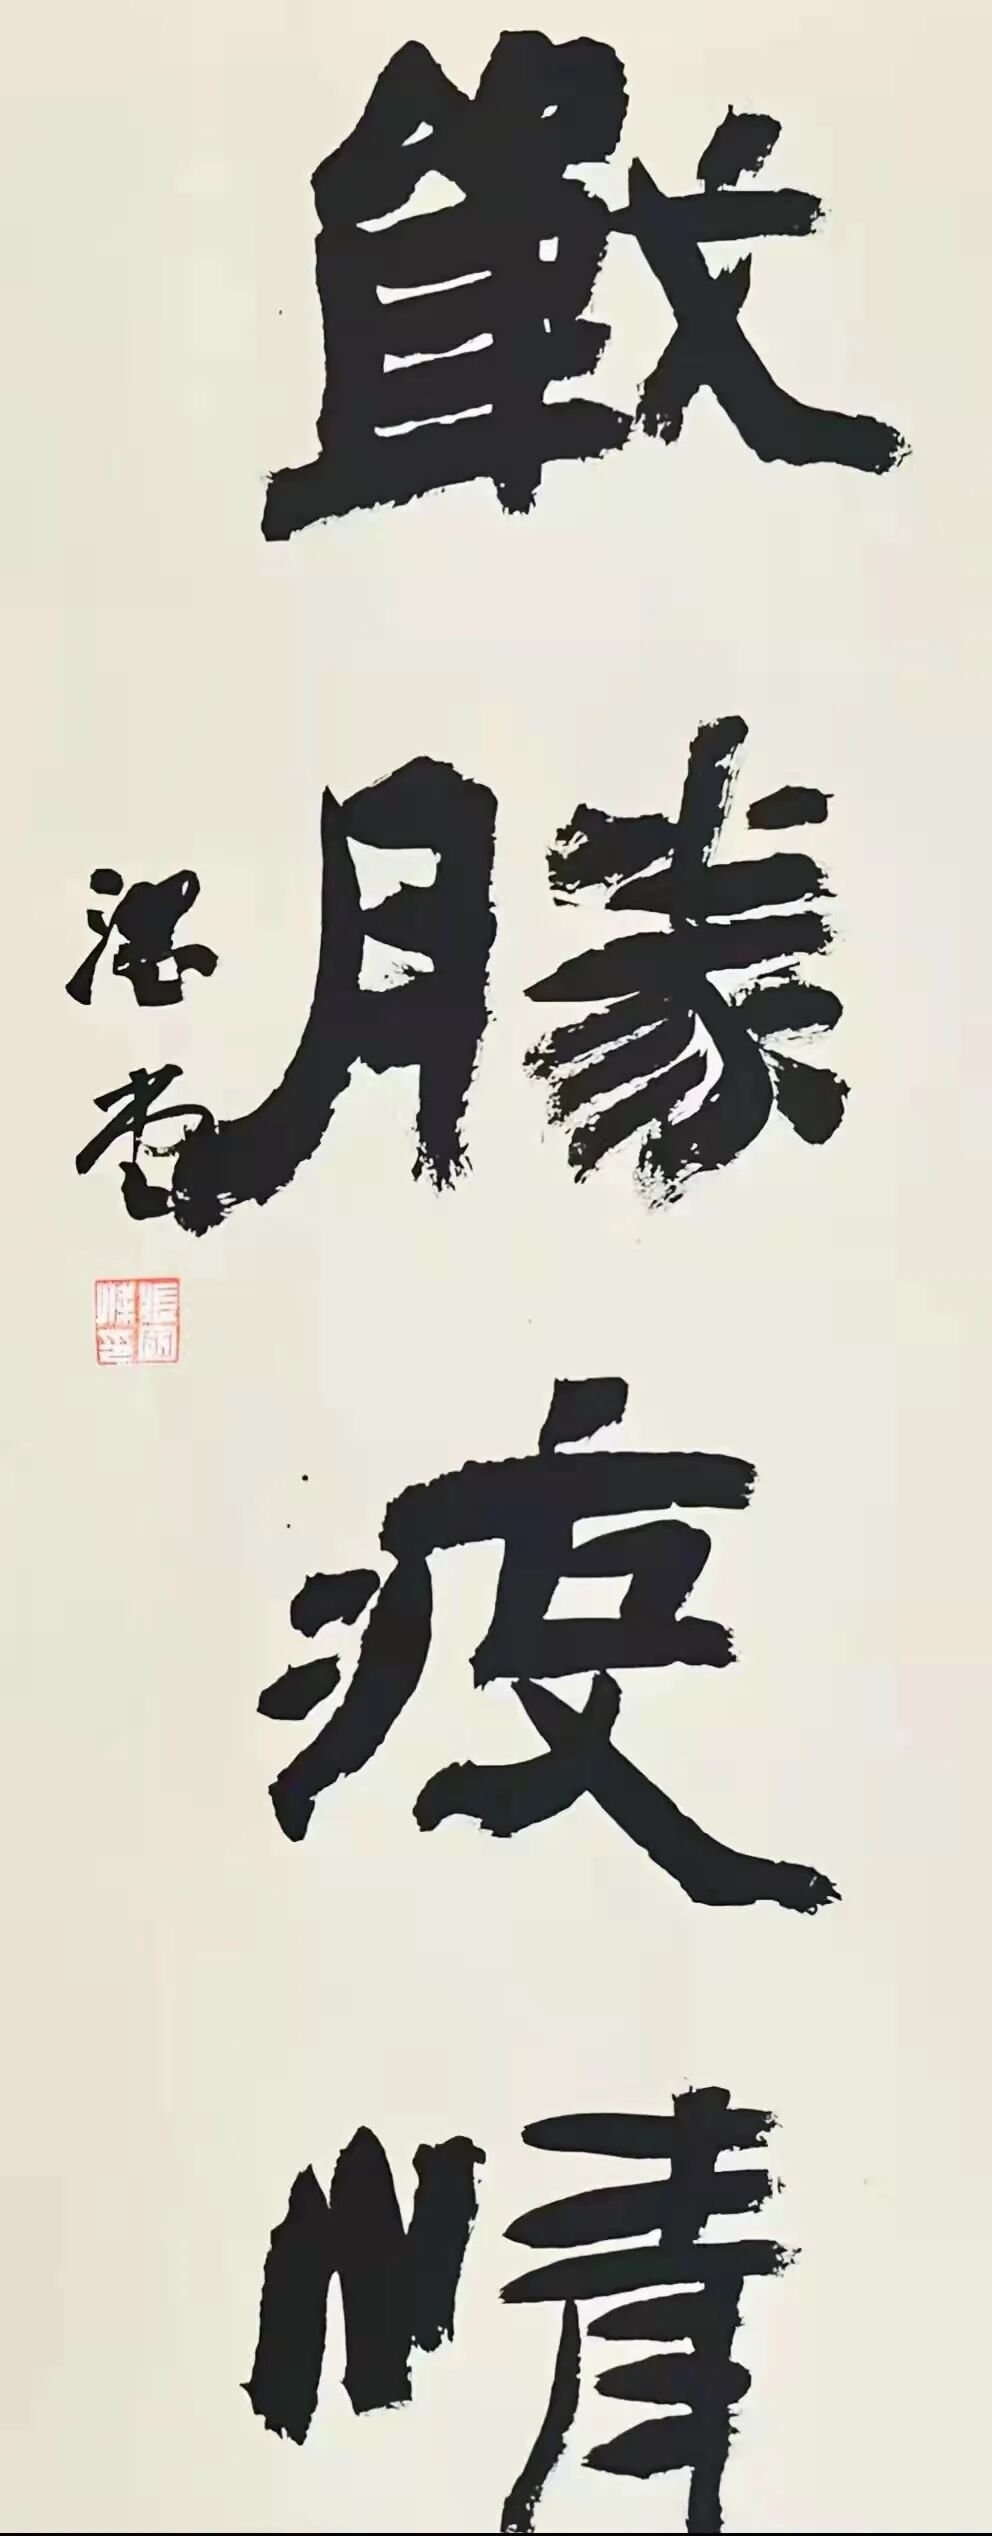 戰勝疫情